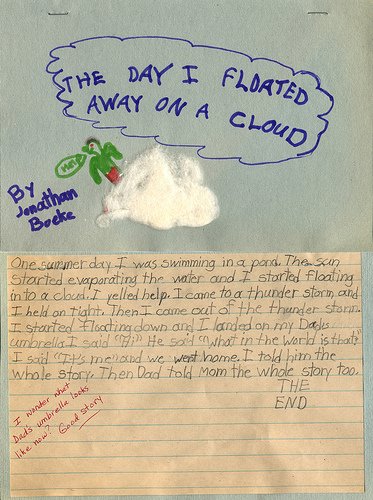 THE DAY I FLOATED
AWAY ON A CLOUD
Help
By
Jonathan
Bocke
One summer day I was swimming in a pond. The sun
started evaporating the water and I started floating
in to a cloud. I yelled help. I came to a thunder storm and
I held on tight. Then I came out of the thunder storm.
I started floating down and I landed on my Dads
umbrella. I said "Hi." He said "what in the world is that?"
I said "It's me" and we went home. I told him the
whole story. Then Dad told Mom the whole story too.
THE
END
I wonder what
Dad's umbrella looks
like now? Good story